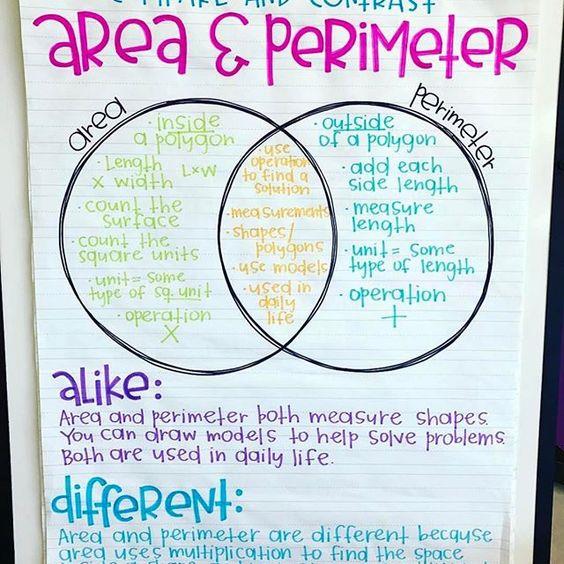 COMPARE AND CONTRAST
area & perimeter
area
perimeter
· inside
a polygon
· Length
x width LxW
· count the
surface
· count the
square units
· unit = some
type of sq. unit
· operation
X
· use
operation
to find a
solution
· measurements
· shapes/
polygons
· use models
· used in
daily
life
· outside
of a polygon
· add each
side length
· measure
length
· unit = some
type of length
· operation
+
alike:
Area and perimeter both measure shapes.
You can draw models to help solve problems.
Both are used in daily life.
different:
Area and perimeter are different because
area uses multiplication to find the space